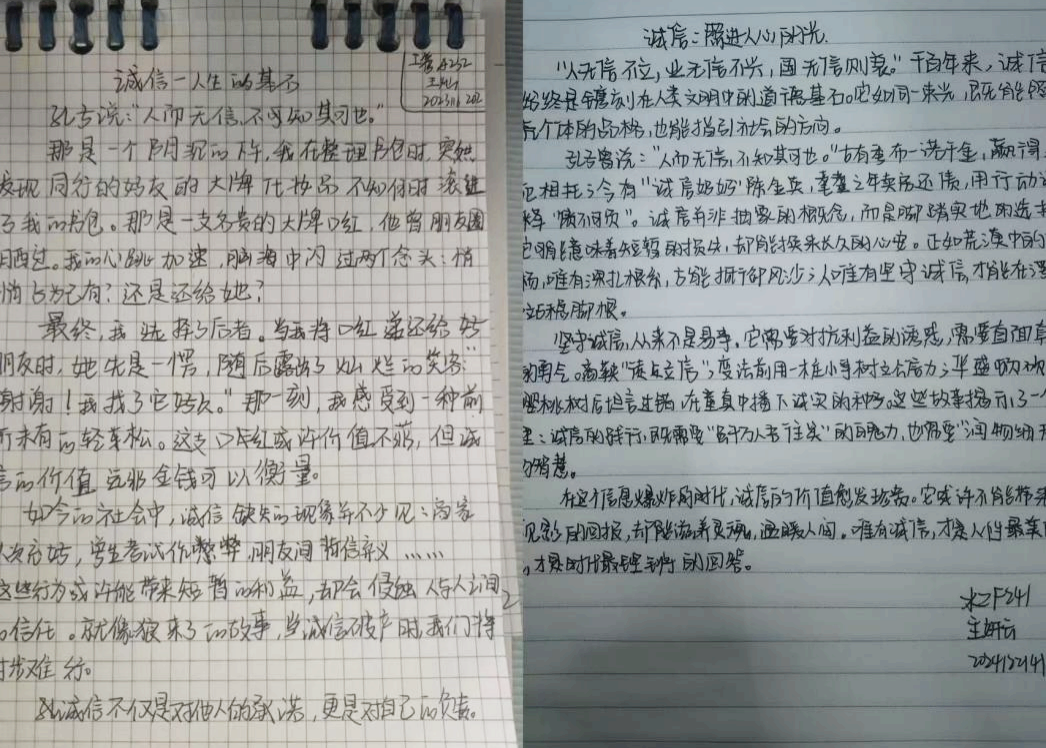 诚信—人生的基石
工管A252
孔老说：“人而无信，不可知其可也。”
那是一个阴沉的下午，我在整理书包时，突然
发现同行的好友的大牌化妆品不知何时滚进
了我的书包。那是一支名贵的大牌口红，他曾朋友圈
晒过。我的心跳加速，脑海中闪过两个念头：悄
悄占为己有？还是还给她？
最终，我选择了后者。当我将口红递还给好
朋友时，她先是一愣，随后露出了灿烂的笑容“
谢谢！我找了它好久。”那一刻，我感受到一种前
所未有的轻车松。这支口红或许价值不菲，但诚
信的价值远非金钱可以衡量。
如今的社会中，诚信缺失的现象并不少见：商家
以次充好，学生考试作弊，朋友间背信弃义……
这些行为或许能带来短暂的利益，却会侵蚀人与人之间
的信任。就像狼来了的故事，当诚信破产时，我们将
寸步难行。
诚信不仅是对他人的承诺，更是对自己的负责。
诚信：照进人心的光
“人无信不立，业无信不兴，国无信则衰。”千百年来，诚信
始终是镌刻在人类文明中的道德基石。它如同一束光，既能
个体的品格，也能指引社会的方向。
孔子曾说：“人而无信，不知其可也。”古有季布一诺千金，赢得
相托；今有“诚信奶奶”陈金英，耄耋之年卖房还债，用行动
释“顾不问负”。诚信并非抽象的概念，而是脚踏实地的选择
它可能意味着短暂的损失，却能换来长久的心安。正如荒漠中的
杨，唯有深扎根系，方能抵御风沙；人唯有坚守诚信，才能在
站稳脚根。
坚守诚信，从来不是易事。它需要对抗利益的诱惑，需要直面
的勇气。商鞅“徙木立信”，变法前用一木在小事树立公信力；华盛顿
樱桃树后坦言过错，在童真中播下诚实的种子。这些故事揭示了一个
：诚信的践行，既需要“虽千万人吾往矣”的魄力，也需要“润物细无
的智慧。
在这个信息爆炸的时代，诚信的价值愈发珍贵。它或许不能带来
见影的回报，却能滋养灵魂，温暖人间。唯有诚信，才是人性最美
，才是时代最铿锵的回答。
水工F241
王妍云
2024122141